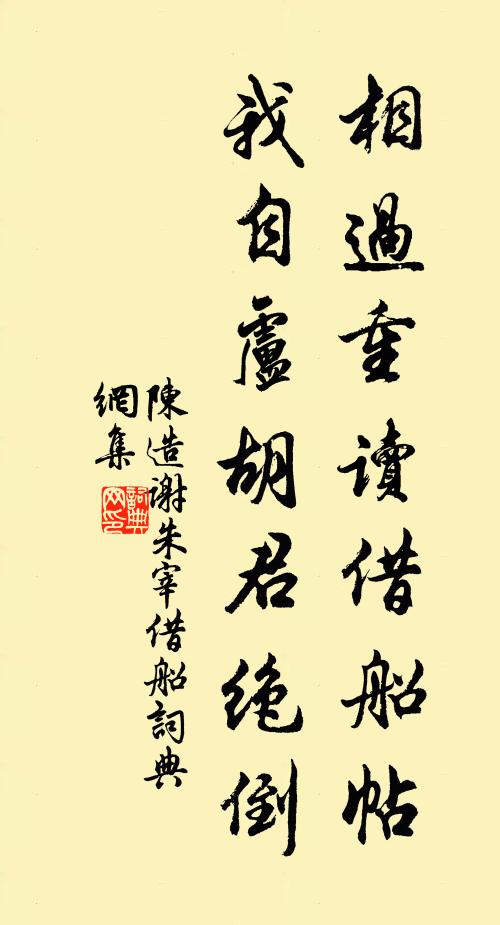 相過重讀借船帖
我自盧胡君絕倒
陳造謝朱宰借船詞典
網集
詞典
网印